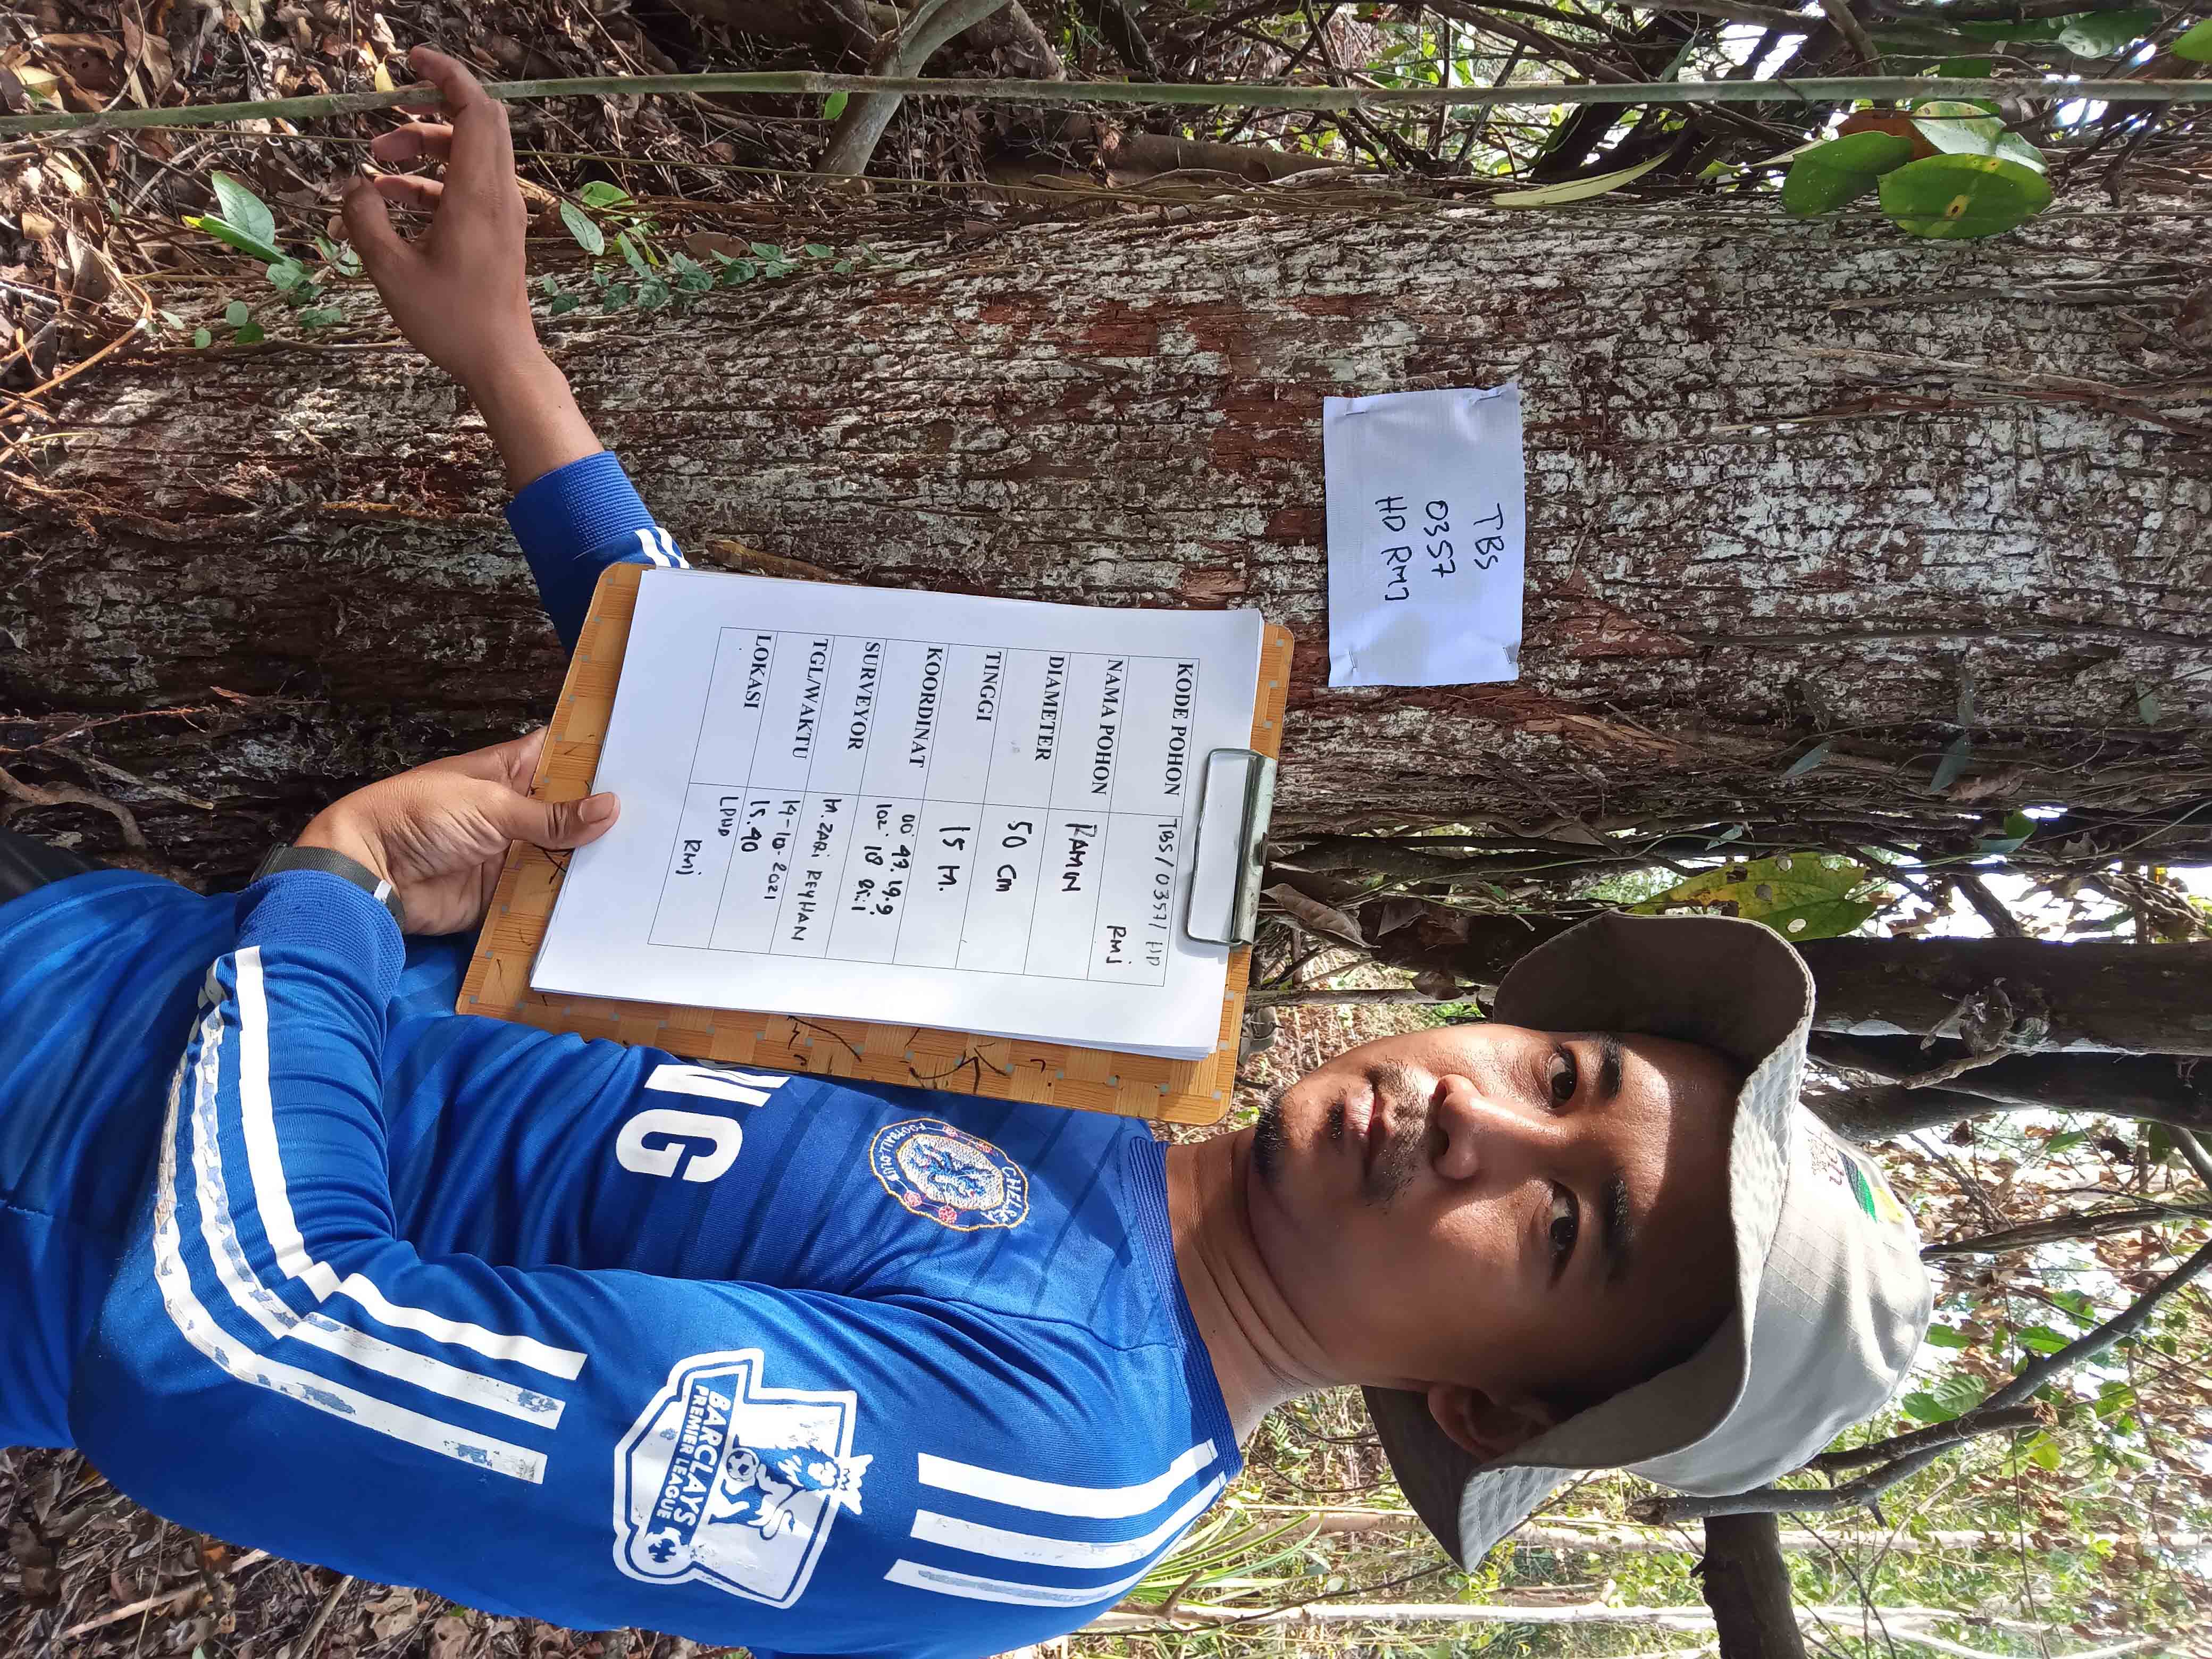 TBS
0357
HD RMJ
KODE POHON TBS/0357/HD
RMJ
NAMA POHON RAMIN
DIAMETER 50 Cm
TINGGI 15 M.
KOORDINAT 00° 47' 19.9
102° 18'
SURVEYOR M. ZARI REYHAN
TGL/WAKTU 14-10-2021
15.40
LOKASI LPHD
RMJ
NG
CHELSEA
FOOTBALL CLUB
BARCLAYS
PREMIER LEAGUE